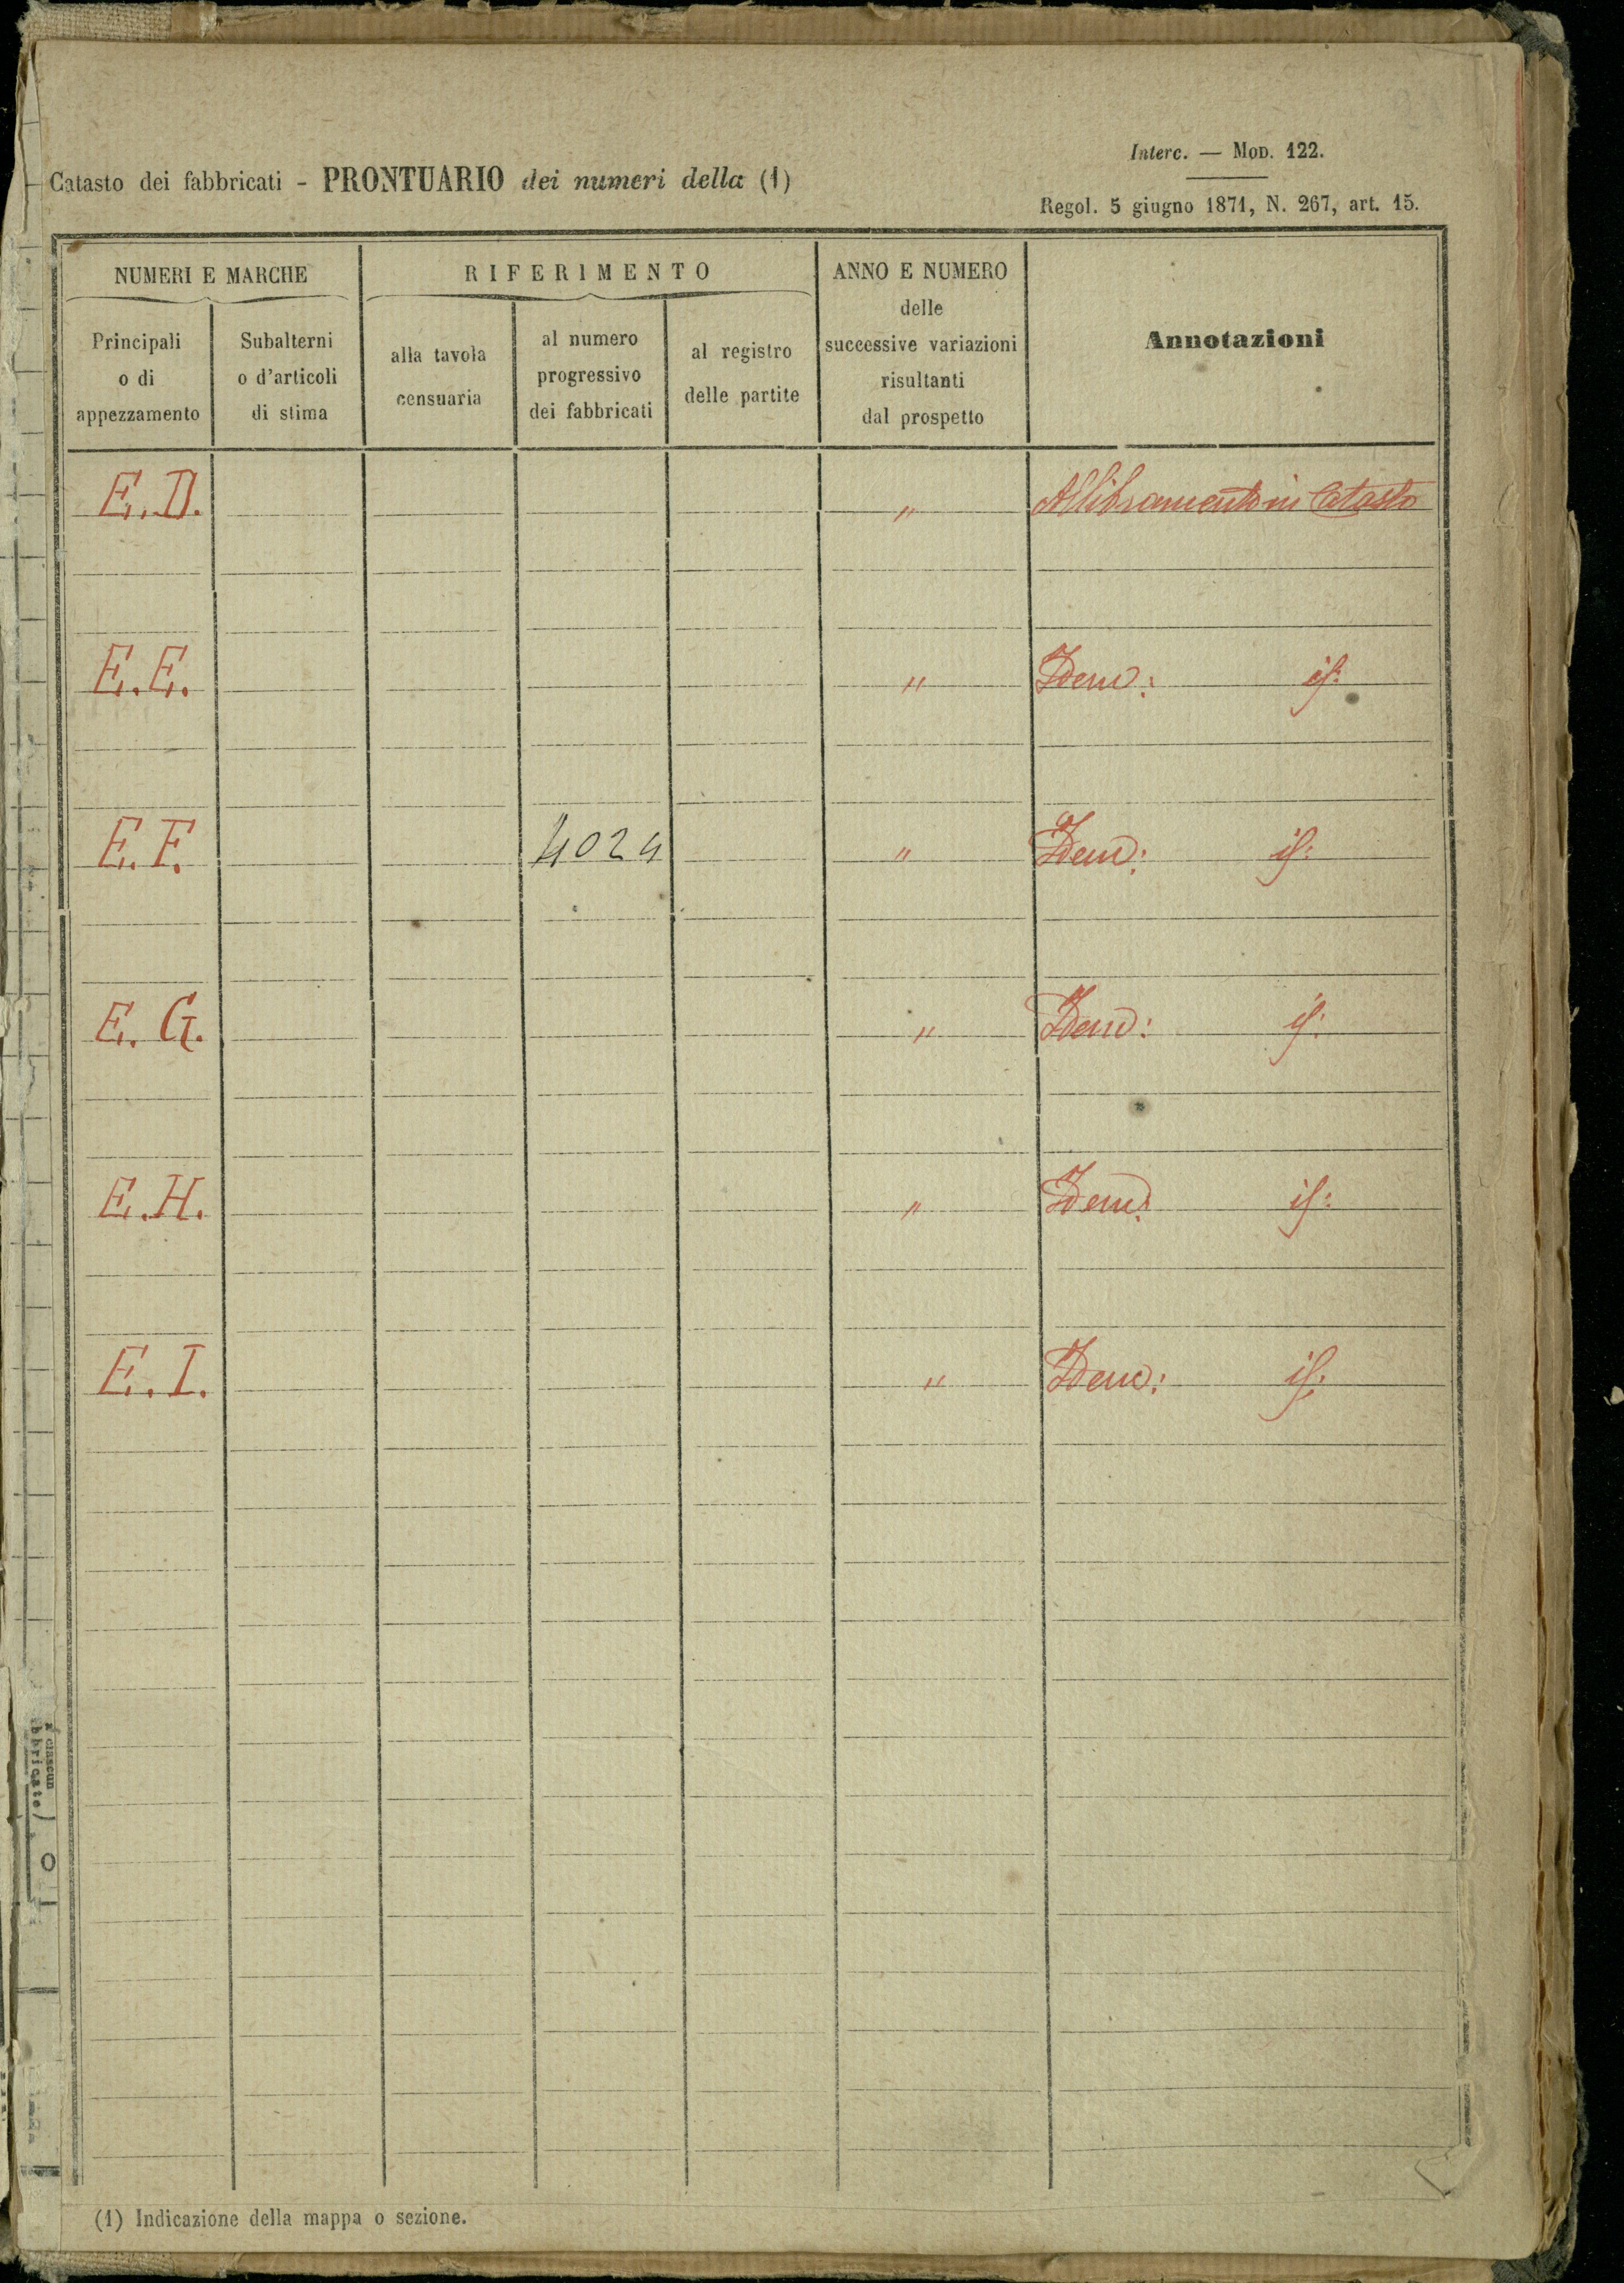 Interc. — Mod. 122.
Catasto dei fabbricati - PRONTUARIO dei numeri della (1)
Regol. 5 giugno 1871, N. 267, art. 15.
NUMERI E MARCHE
RIFERIMENTO
ANNO E NUMERO
delle
successive variazioni
risultanti
dal prospetto
Annotazioni
Principali
o di
appezzamento
Subalterni
o d'articoli
di stima
alla tavola
censuaria
al numero
progressivo
dei fabbricati
al registro
delle partite
E.D. " Allibramento in Catasto
E.E. " Idem: id:
E.F. 4024 " Idem: id:
E.G. " Idem: id:
E.H. " Idem: id:
E.I. " Idem: id:
(1) Indicazione della mappa o sezione.